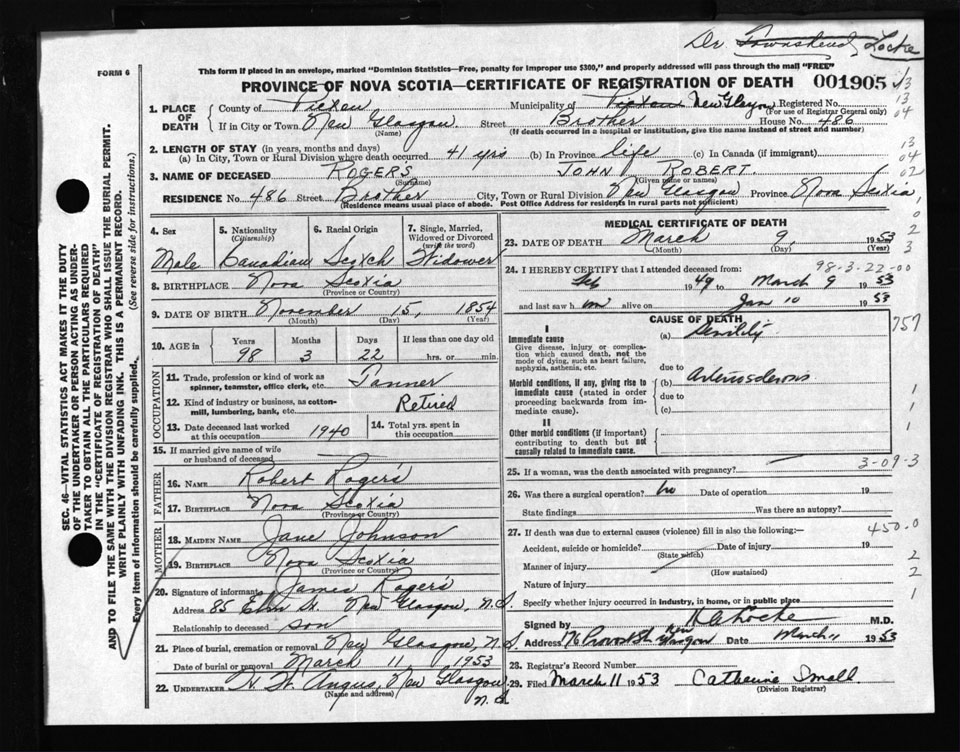 Dr. Townshend, Locke
FORM 6
This form if placed in an envelope, marked "Dominion Statistics—Free, penalty for improper use $300," and properly addressed will pass through the mail "FREE"
PROVINCE OF NOVA SCOTIA—CERTIFICATE OF REGISTRATION OF DEATH 001905
1. PLACE OF DEATH
County of Pictou Municipality of Pictou New Glasgow Registered No.
(For use of Registrar General only)
If in City or Town New Glasgow. Street Brother House No. 486
(Name) (If death occurred in a hospital or institution, give the name instead of street and number)
2. LENGTH OF STAY (in years, months and days)
(a) In City, Town or Rural Division where death occurred 41 yrs (b) In Province life (c) In Canada (if immigrant)
3. NAME OF DECEASED ROGERS JOHN ROBERT.
(Surname) (Given name or names)
RESIDENCE No. 486 Street Brother City, Town or Rural Division New Glasgow Province Nova Scotia
(Residence means usual place of abode. Post Office Address for residents in rural parts not sufficient)
13
13
04
13
04
02
1
0
2
3
4. Sex
5. Nationality (Citizenship)
6. Racial Origin
7. Single, Married, Widowed or Divorced (write the word)
Male Canadian Scotch Widower
8. BIRTHPLACE Nova Scotia
(Province or Country)
9. DATE OF BIRTH November 15, 1854
(Month) (Day) (Year)
10. AGE in Years Months Days If less than one day old
98 3 22 hrs. or min.
OCCUPATION
11. Trade, profession or kind of work as spinner, teamster, office clerk, etc. Tanner
12. Kind of industry or business, as cotton-mill, lumbering, bank, etc. Retired
13. Date deceased last worked at this occupation 1940
14. Total yrs. spent in this occupation
15. If married give name of wife or husband of deceased
FATHER
16. NAME Robert Rogers
17. BIRTHPLACE Nova Scotia
(Province or Country)
MOTHER
18. MAIDEN NAME Jane Johnson
19. BIRTHPLACE Nova Scotia
(Province or Country)
20. Signature of informant James Rogers
Address 85 Elm St. New Glasgow, N.S.
Relationship to deceased son
21. Place of burial, cremation or removal New Glasgow, N.S.
Date of burial or removal March 11 1953
22. UNDERTAKER H. W. Angus, New Glasgow, N.S.
(Name and address)
MEDICAL CERTIFICATE OF DEATH
23. DATE OF DEATH March 9, 1953
(Month) (Day) (Year)
98-3-22-00
24. I HEREBY CERTIFY that I attended deceased from:
Feb 1949 to March 9 1953
and last saw him alive on Jan 10 1953
CAUSE OF DEATH
I
Immediate cause
Give disease, injury or complication which caused death, not the mode of dying, such as heart failure, asphyxia, asthenia, etc.
(a) Senility
due to
757
Morbid conditions, if any, giving rise to immediate cause (stated in order proceeding backwards from immediate cause).
(b) Arteriosclerosis
due to
(c)
1
1
1
II
Other morbid conditions (if important) contributing to death but not causally related to immediate cause.
25. If a woman, was the death associated with pregnancy?
3-09-3
26. Was there a surgical operation? no Date of operation 19
State findings Was there an autopsy?
27. If death was due to external causes (violence) fill in also the following:—
450.0
Accident, suicide or homicide? Date of injury 19
(State which)
2
Manner of injury
(How sustained)
2
Nature of injury
1
Specify whether injury occurred in industry, in home, or in public place
Signed by Locke M.D.
Address 176 Provost St. New Glasgow Date March 11 1953
28. Registrar's Record Number
29. Filed March 11 1953 Catherine Small.
(Division Registrar)
SEC. 46—VITAL STATISTICS ACT MAKES IT THE DUTY
OF THE UNDERTAKER OR PERSON ACTING AS UNDER-
TAKER TO OBTAIN ALL THE PARTICULARS REQUIRED
IN THE "CERTIFICATE OF REGISTRATION OF DEATH"
AND TO FILE THE SAME WITH THE DIVISION REGISTRAR WHO SHALL ISSUE THE BURIAL PERMIT.
WRITE PLAINLY WITH UNFADING INK. THIS IS A PERMANENT RECORD.
Every item of information should be carefully supplied. (See reverse side for instructions.)